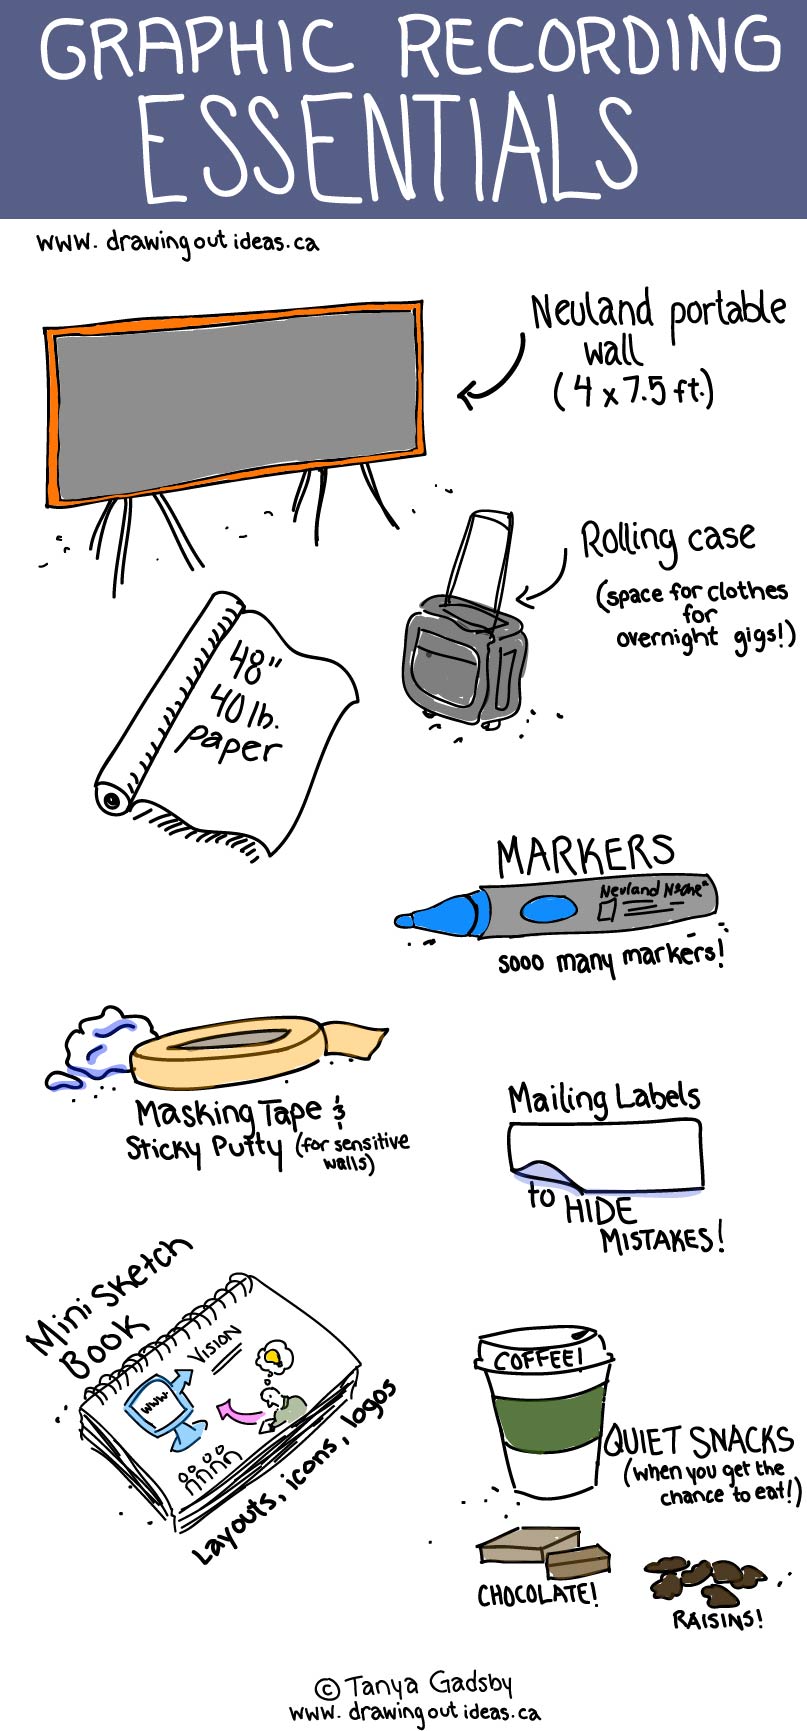 GRAPHIC RECORDING
ESSENTIALS
www.drawingoutideas.ca
Neuland portable
wall
(4 x 7.5 ft.)
Rolling case
(space for clothes
for
overnight gigs!)
48"
40 lb.
paper
MARKERS
Neuland
sooo many markers!
Masking Tape &
Sticky Putty (for sensitive
walls)
Mailing Labels
to HIDE
MISTAKES!
Mini Sketch
Book
VISION
www.
Layouts, icons, logos
COFFEE!
QUIET SNACKS
(when you get the
chance to eat!)
CHOCOLATE!
RAISINS!
© Tanya Gadsby
www.drawingoutideas.ca